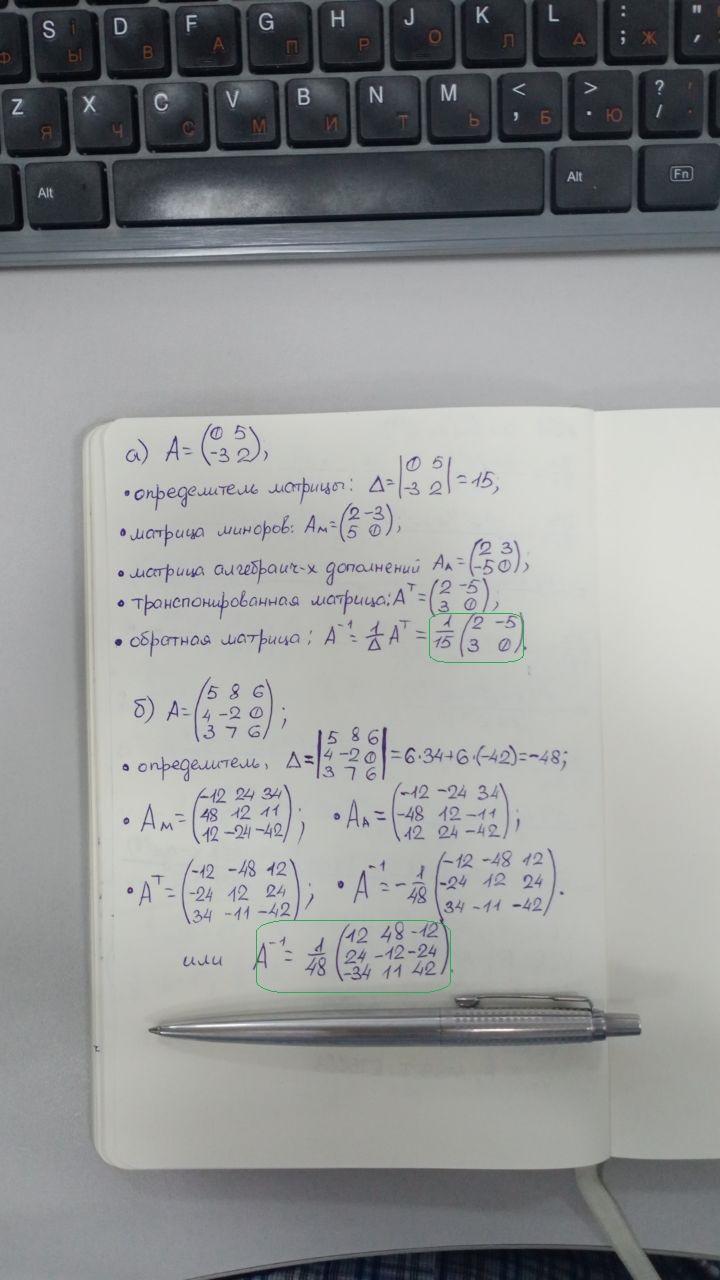 S і Ы D В F А G П H Р J О K Л L Д : ; Ж " ,
Z Я X Ч C С V М B И N Т M Ь < , Б > . Ю ? /
Alt Alt Fn
а) A = (0 5; -3 2);
• определитель матрицы: Δ = |0 5; -3 2| = 15;
• матрица миноров: Aм = (2 -3; 5 0);
• матрица алгебраич-х дополнений AА = (2 3; -5 0);
• транспонированная матрица: Aᵀ = (2 -5; 3 0);
• обратная матрица: A⁻¹ = 1/Δ Aᵀ = 1/15 (2 -5; 3 0).
б) A = (5 8 6; 4 -2 0; 3 7 6);
• определитель, Δ = |5 8 6; 4 -2 0; 3 7 6| = 6·34+6·(-42) = -48;
• Aм = (-12 24 34; 48 12 11; 12 -24 -42); • AА = (-12 -24 34; -48 12 -11; 12 24 -42);
• Aᵀ = (-12 -48 12; -24 12 24; 34 -11 -42); • A⁻¹ = -1/48 (-12 -48 12; -24 12 24; 34 -11 -42).
или A⁻¹ = 1/48 (12 48 -12; 24 -12 -24; -34 11 42).